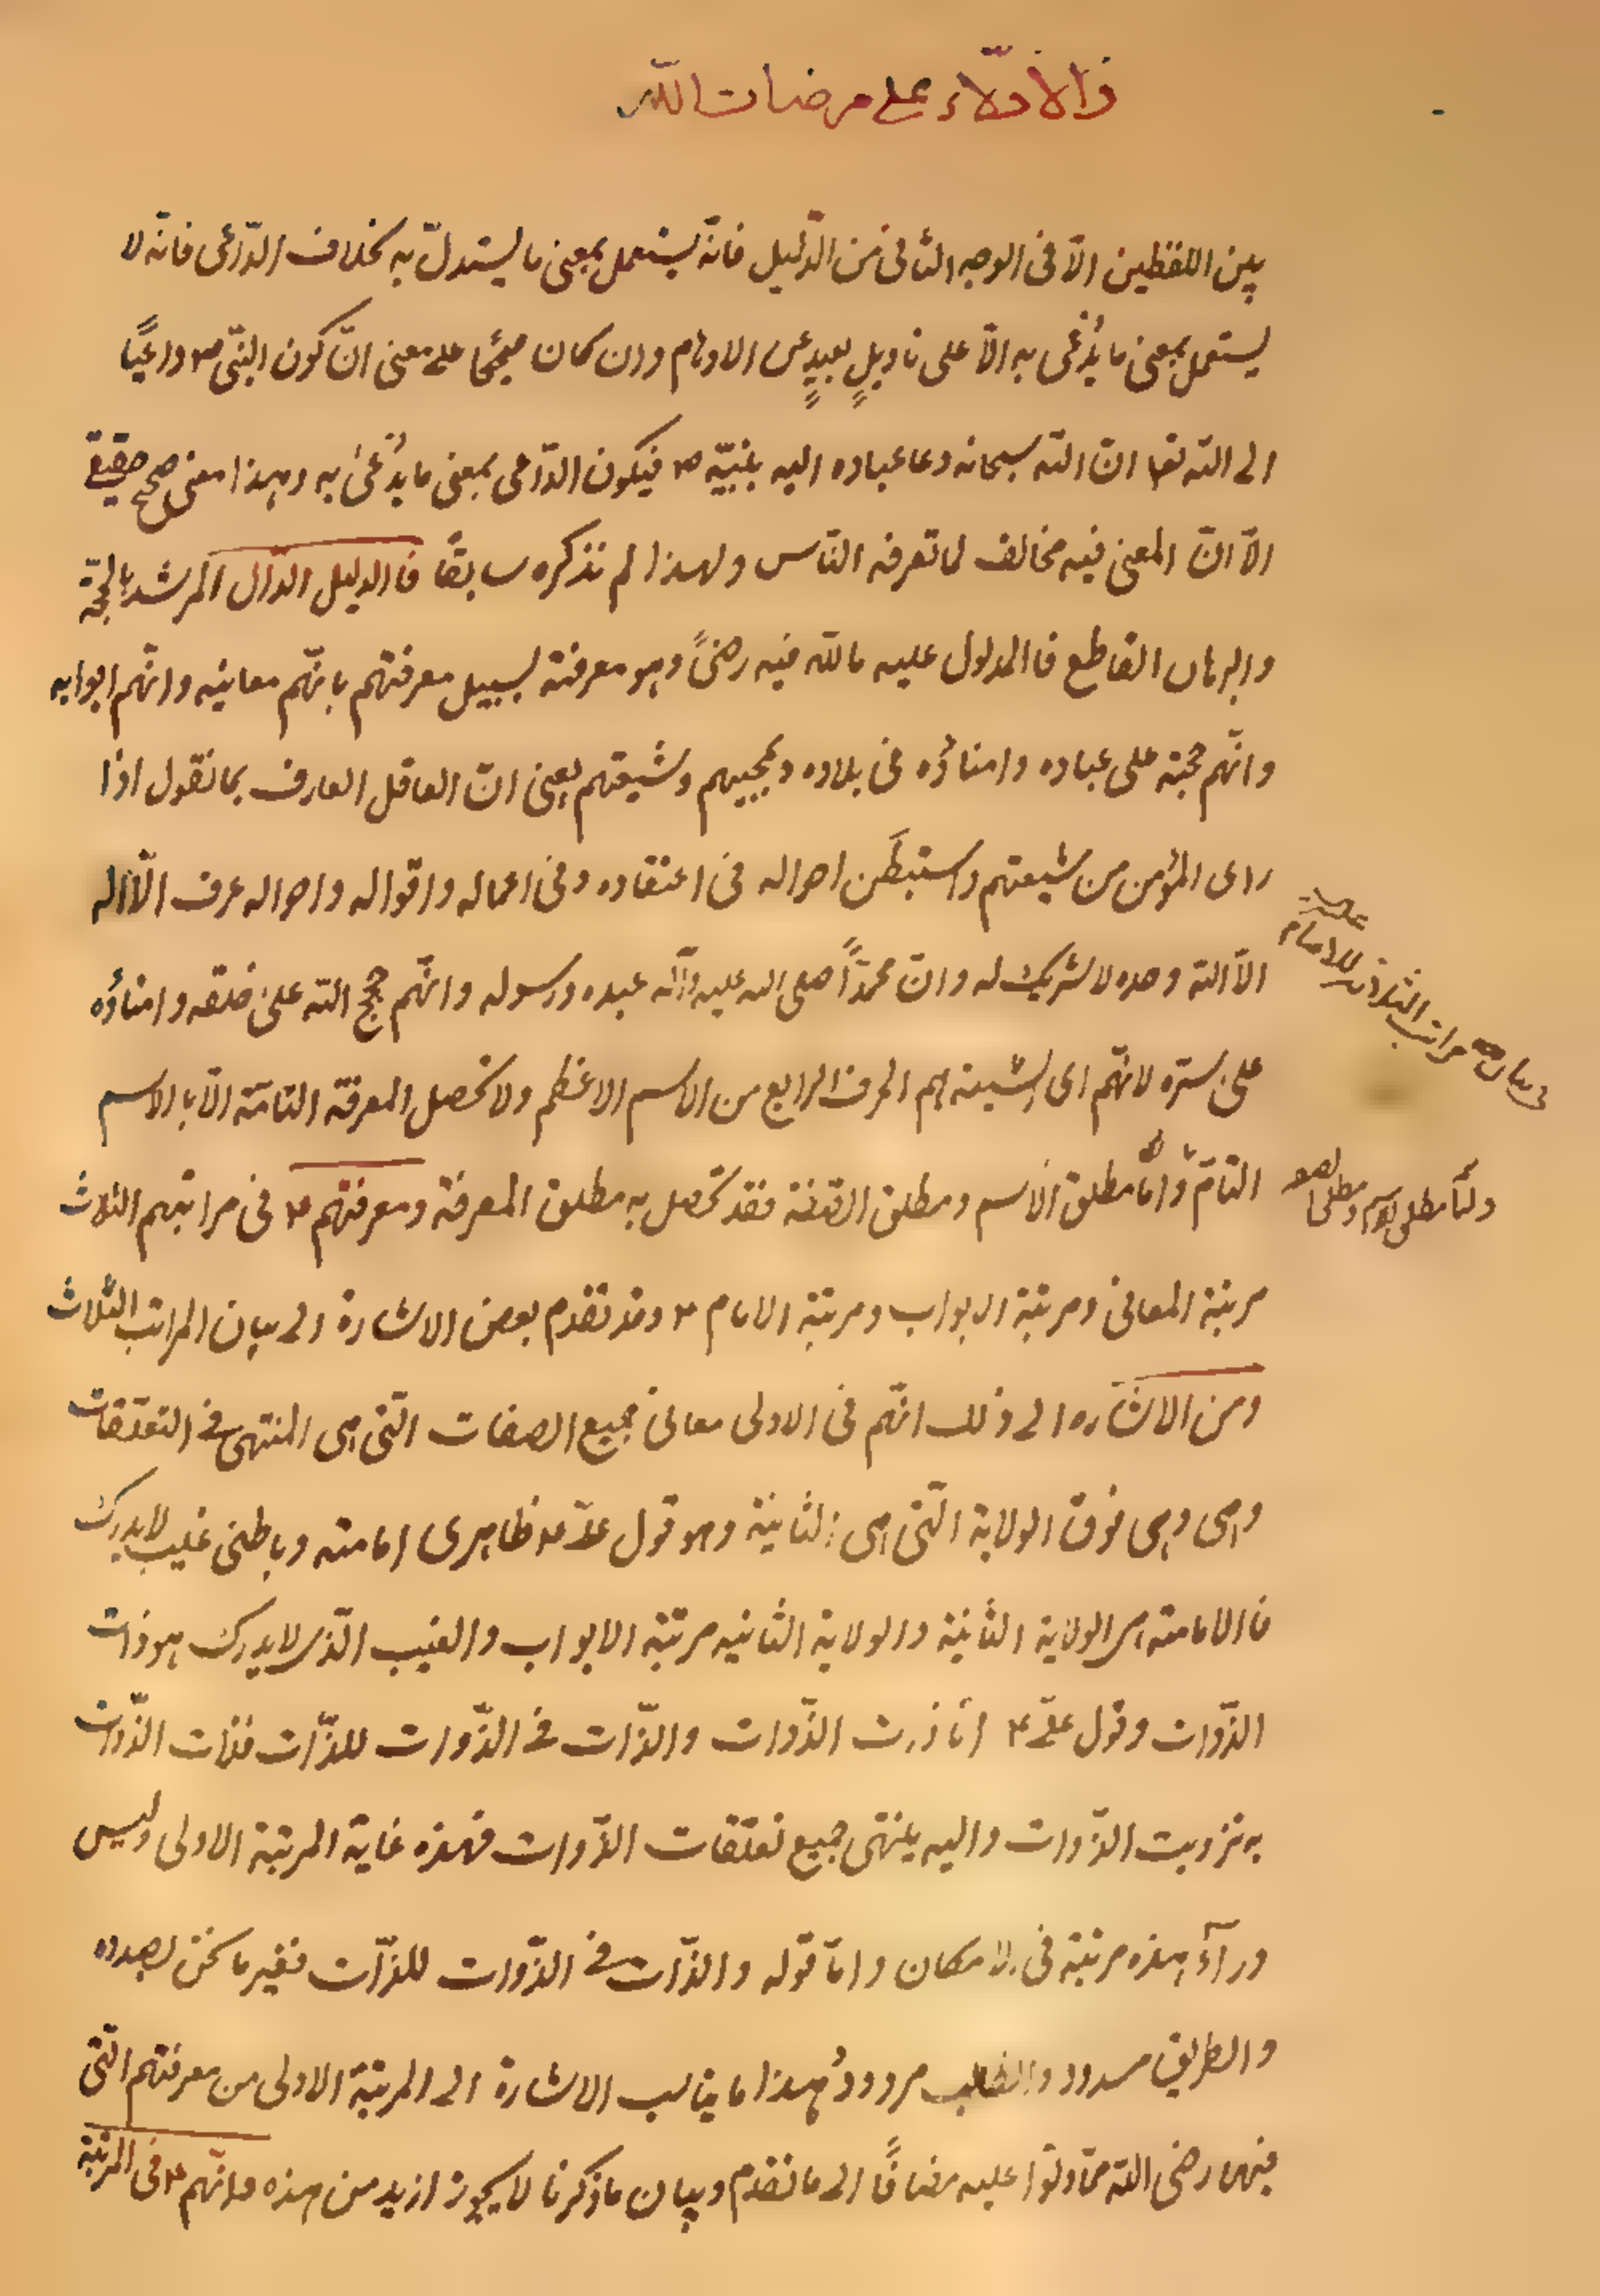 والادلّاء على مرضات الله
بين اللفظين الّا فى الوجه الثانى من الدّليل فانّه يستعمل بمعنى ما يستدلّ به بخلاف الدّاعى فانّه لا
يستعمل بمعنى ما يُدْعى به الّا على تاويلٍ بعيدٍ عن الاوهام وان كان صحيحًا على معنى انّ كون النبّى ص داعيًا
الى الله تعا انّ الله سبحانه دعا عباده اليه بنبيّه ص فيكون الدّاعى بمعنى ما يُدْعىٰ به وهذا معنى صحيح حقيقى
الّا انّ المعنى فيه مخالف لما تعرفه النّاس ولهذا لم نذكره سابقًا فالدليل الدّال المرشد بالحجّة
والبرهان القاطع فالمدلول عليه ما لله فيه رضىً وهو معرفته بسبيل معرفتهم بانّهم معانيه وانّهم ابوابه
وانّهم حججه على عباده وامناؤه فى بلاده وبمحبيهم وشيعتهم يعنى انّ العاقل العارف بما نقول اذا
راى المؤمن من شيعتهم واستبطَن احواله فى اعتقاده وفى اعماله واقواله واحواله عرف الّا اله
الّا الله وحده لا شريك له وانّ محمّدًا صلى الله عليه وآله عبده ورسوله وانّهم حجج الله على خلقه وامناؤه
على سرّه لانّهم اى الشيعة هم الحرف الرابع من الاسم الاعظم ولا تحصل المعرفة التامّة الّا بالاسم
التامّ وامّا مطلق الاسم ومطلق الصّفة فقد تحصل به مطلق المعرفة ومعرفتهم ع فى مراتبهم الثلاث
مرتبة المعانى ومرتبة الابواب ومرتبة الامام ع وقد تقدم بعض الاشارة الى بيان المراتب الثّلاث
ومن الاشاره الى ذلك انّهم فى الاولى معانى جميع الصفات الّتى هى المنتهى فى التعلّقات
وهى وهى فوق الولاية الّتى هى الثانية وهو قول علىّ ع ظاهرى امامته وباطنى غيب لا يدرك
فالامامة هى الولاية الثانية والولاية الثانيه مرتبة الابواب والغيب الّذى لا يدرك هو ذات
الذّوات وقول علىّ ع انا ذات الذّوات والذّات فى الذّوات للذّات فذات الذّوات
به تذوّت الذّوات واليه ينتهى جميع تعلّقات الذّوات فهذه غاية المرتبة الاولى وليس
ورآءَ هذه مرتبة فى الامكان وامّا قوله والذّات فى الذّوات للذّات فغير ما نحن بصدده
والطريق مسدود والطلب مردودُ فهذا ما يناسب الاشارة الى المرتبة الاولى من معرفتهم الّتى
فيها رضى الله ممّا دلّوا عليه مضافًا الى ما تقدّم وبيان ما ذكرنا لا يجوز ازيد من هذه وانّهم ع فى المرتبة
فى بيان مراتب الثلاثة للامام
عليه